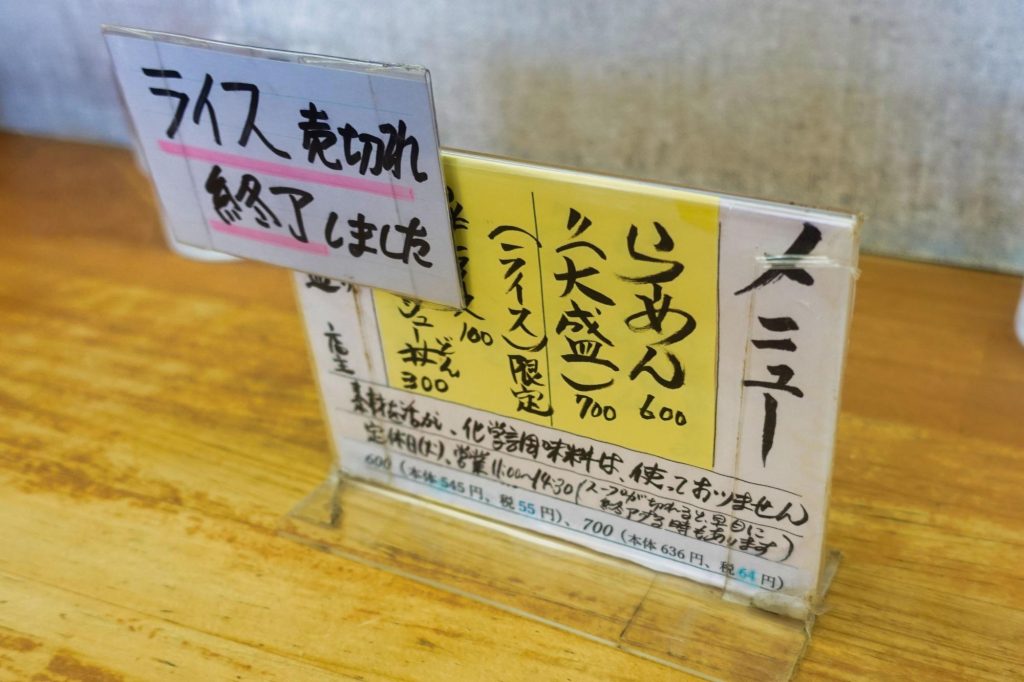 ライス売切れ
終了しました
メニュー
らーめん 600
〃(大盛) 700
(ライス)限定
100
どん
300
素材を活かし、化学調味料は、使っておりません
定休日(火)、営業11:00〜14:30(スープが切れると、早目に
終了する時もあります)
600(本体545円、税55円)、700(本体636円、税64円)